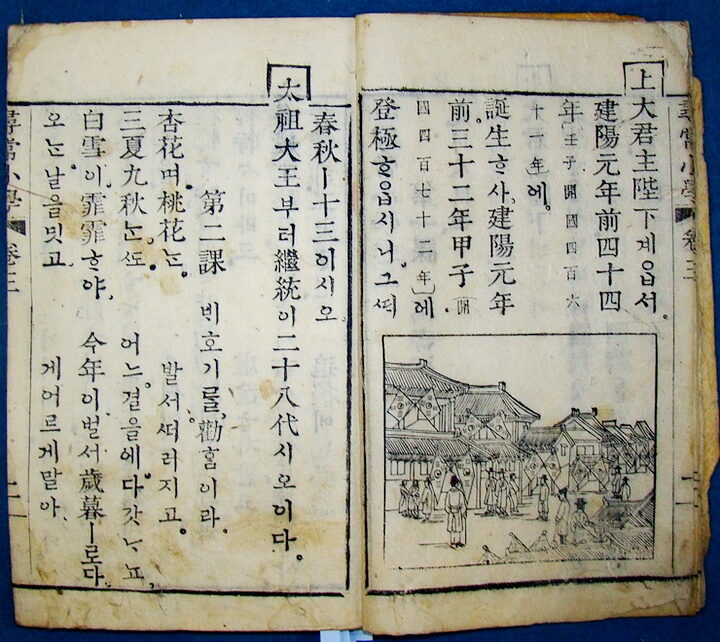 尋常小學 卷三
上大君主陛下게읍셔。
建陽元年前四十四
年〔壬子開國四百六
十一年〕에。
誕生ᄒᆞ사、建陽元年
前三十二年甲子〔開
國四百七十二年〕에
登極ᄒᆞ읍시니그ᄯᅢ
春秋ㅣ十三이시오
太祖大王부터繼統이二十八代시오이다。
第二課 비호기를、勸홈이라。
杏花며桃花ᄂᆞᆫ。 발서ᄯᅥ러지고。
三夏九秋ᄂᆞᆫᄯᅩ。 어느결을에다갓ᄂᆞ뇨、
白雪이霏霏ᄒᆞ야、 今年이벌서歲暮ㅣ로다、
오ᄂᆞᆫ날을밋고 게어르게말아、
尋常小學 卷三